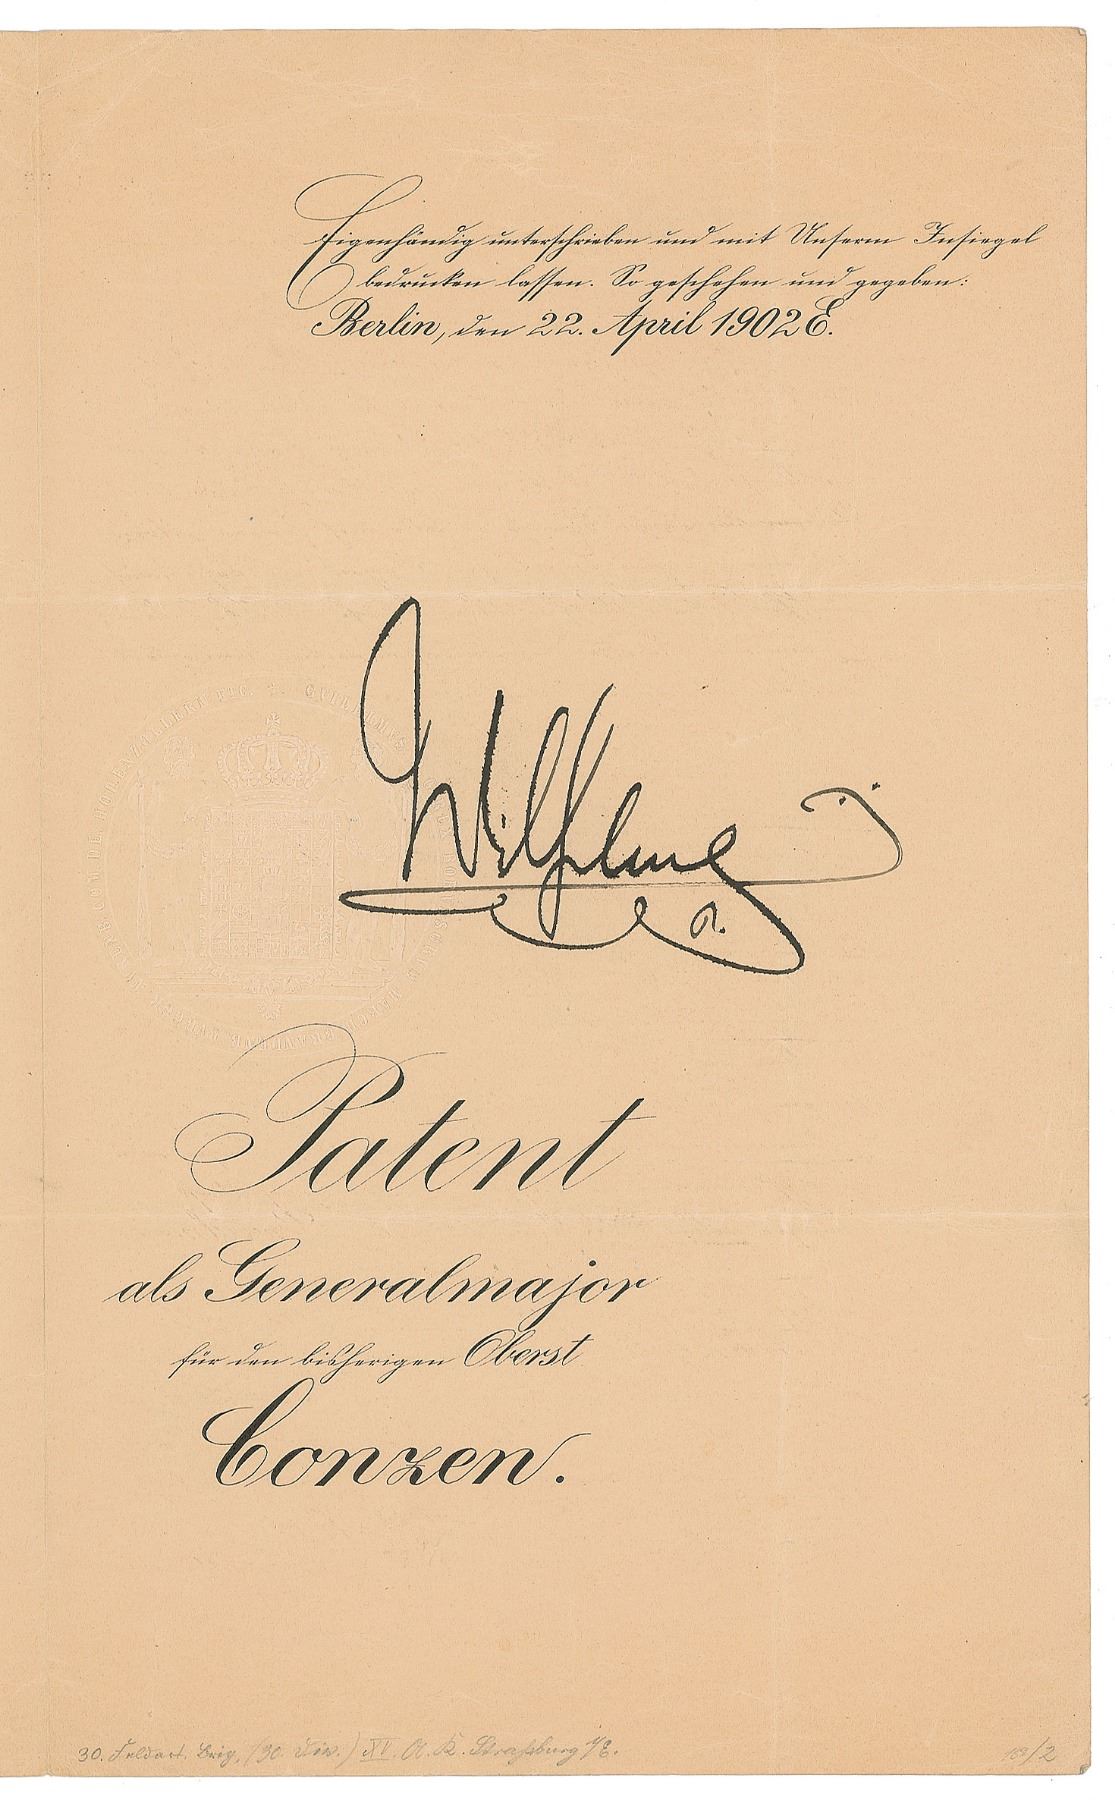 Eigenhändig unterschrieben und mit Unserm Insiegel
bedrucken lassen. So geschehen und gegeben:
Berlin, den 22. April 1902 E.
Wilhelm
R.
Patent
als Generalmajor
für den bisherigen Oberst
Conzen.
30. Feldart. Brig. (30. Div.) XV. A. K. Straßburg i/E.